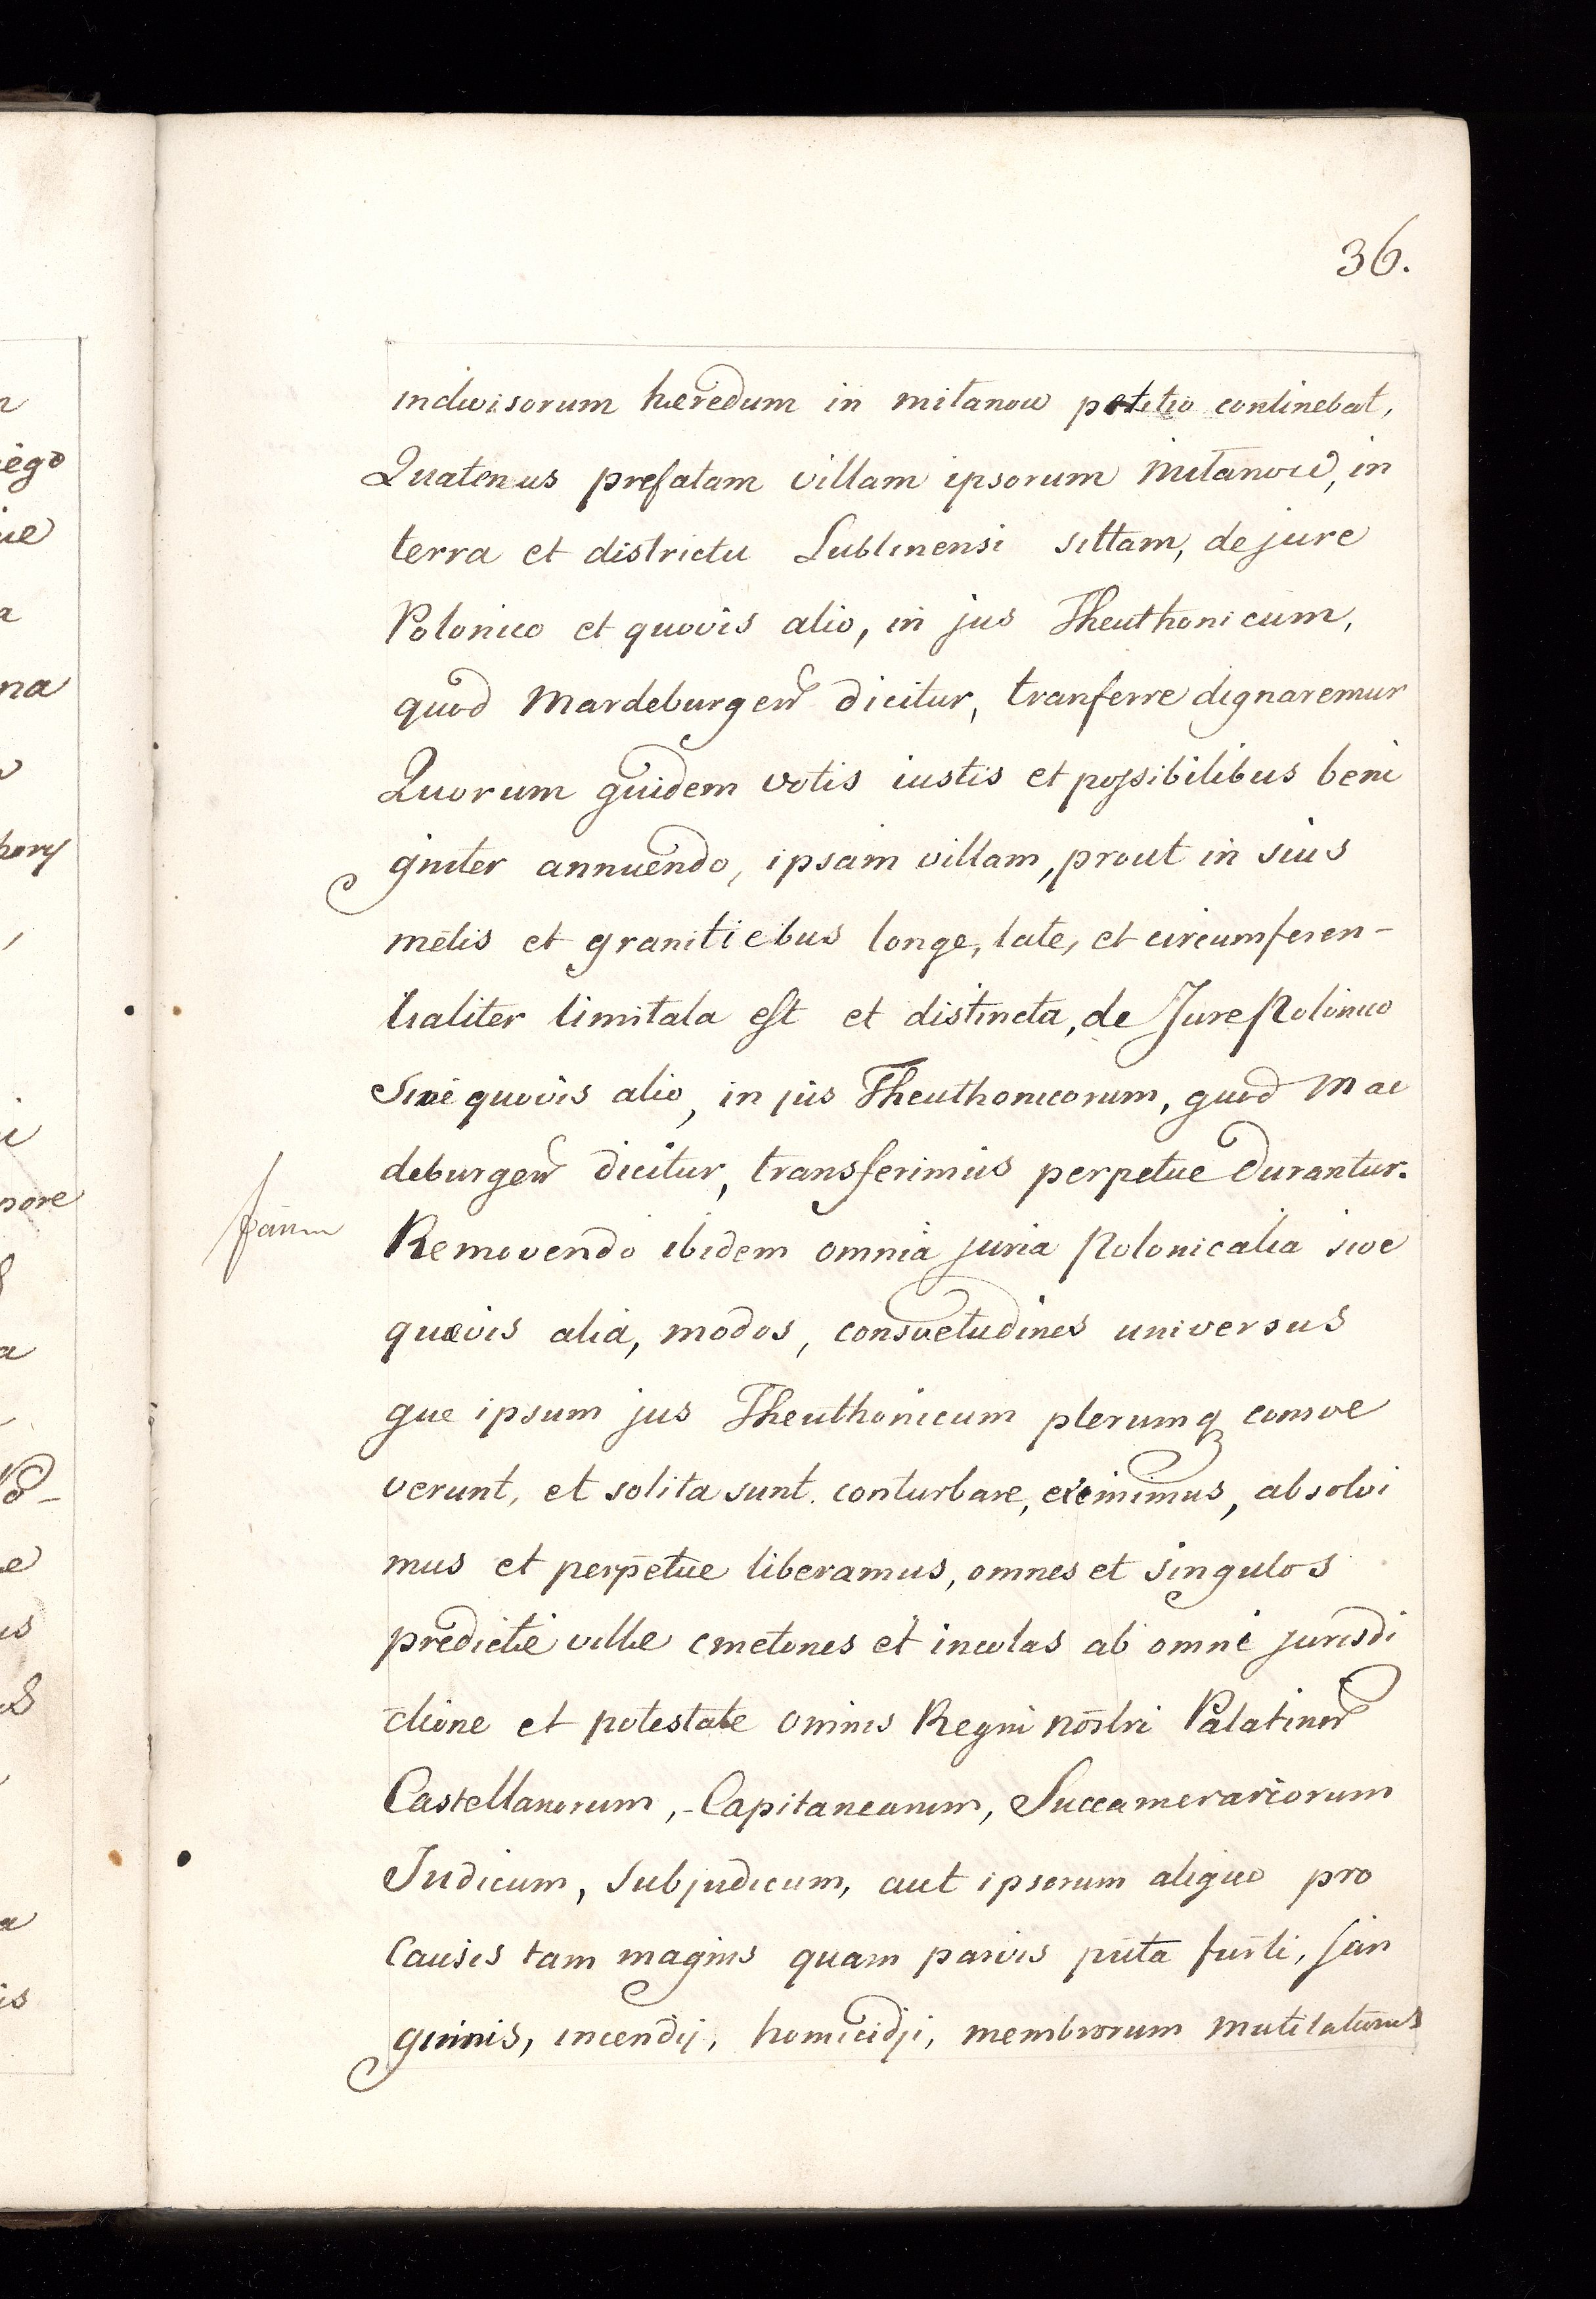 36.
indivisorum heredum in mitanow petitio continebat,
Quatenus prefatam villam ipsorum Mitanow, in
terra et districtu Lublinensi sittam, de jure
Polonico et quovis alio, in jus Theuthonicum,
quod Mardeburgen dicitur, tranferre dignaremur
Quorum quidem votis iustis et possibilibus beni
gniter annuendo, ipsam villam, prout in suis
metis et granitiebus longe, late, et circumferen-
tialiter limitata est et distincta, de Jure Polonico
Sive quovis alio, in jus Theuthonicorum, quod Mac
deburgen dicitur, transferimus perpetue Durantur.
Removendo ibidem omnia juria Polonicalia sive
quævis alia, modos, consvetudines universus
que ipsum jus Theuthonicum plerumq consve
verunt, et solita sunt conturbare, eximimus, absolvi
mus et perpetue liberamus, omnes et singulos
predicte ville cmetones et incolas ab omni jurisdi
ctione et potestate omnis Regni nostri Palatinor
Castellanorum, Capitaneorum, Succamerariorum
Judicum, Subjudicum, aut ipsorum aliquo pro
Causis tam magnis quam parvis puta furti, san
guinis, incendij, homicidji, membrorum mutilationis